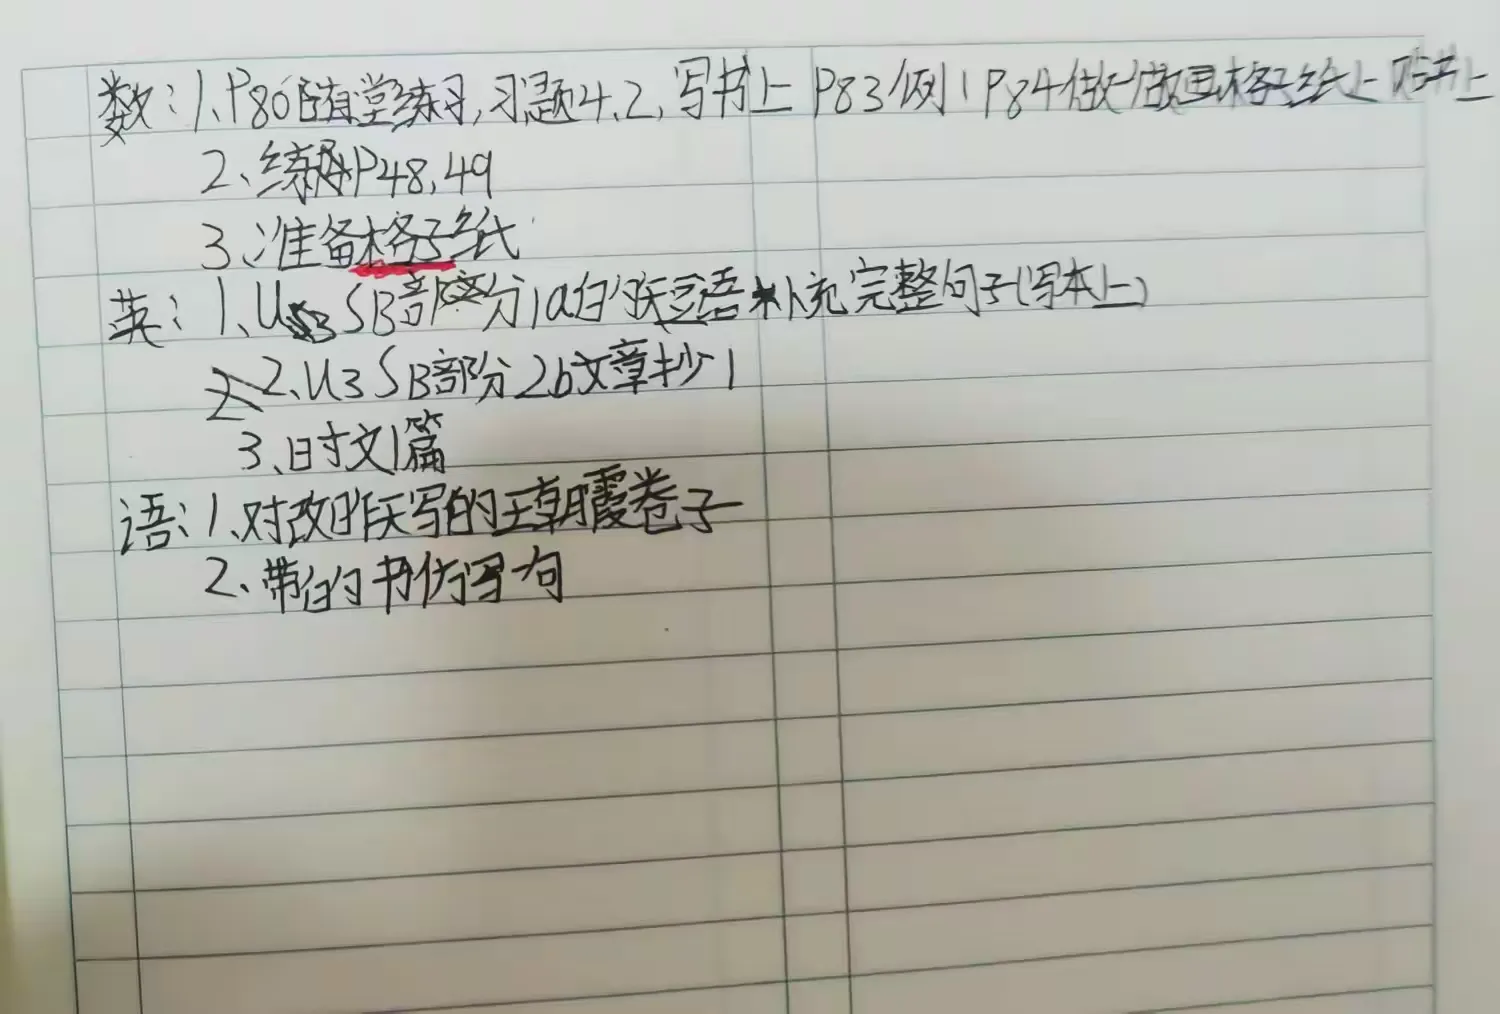 数:1、P80随堂练习,习题4.2,写书上 P83例1 P84做一做画格子纸上贴书上
2、练册P48,49
3、准备格子纸
英:1、U3 SB部分1a的短语补充完整句子(写本上)
2、U3 SB部分2b文章抄1
3、时文1篇
语:1、对改昨天写的王朝霞卷子
2、带的书仿写一句